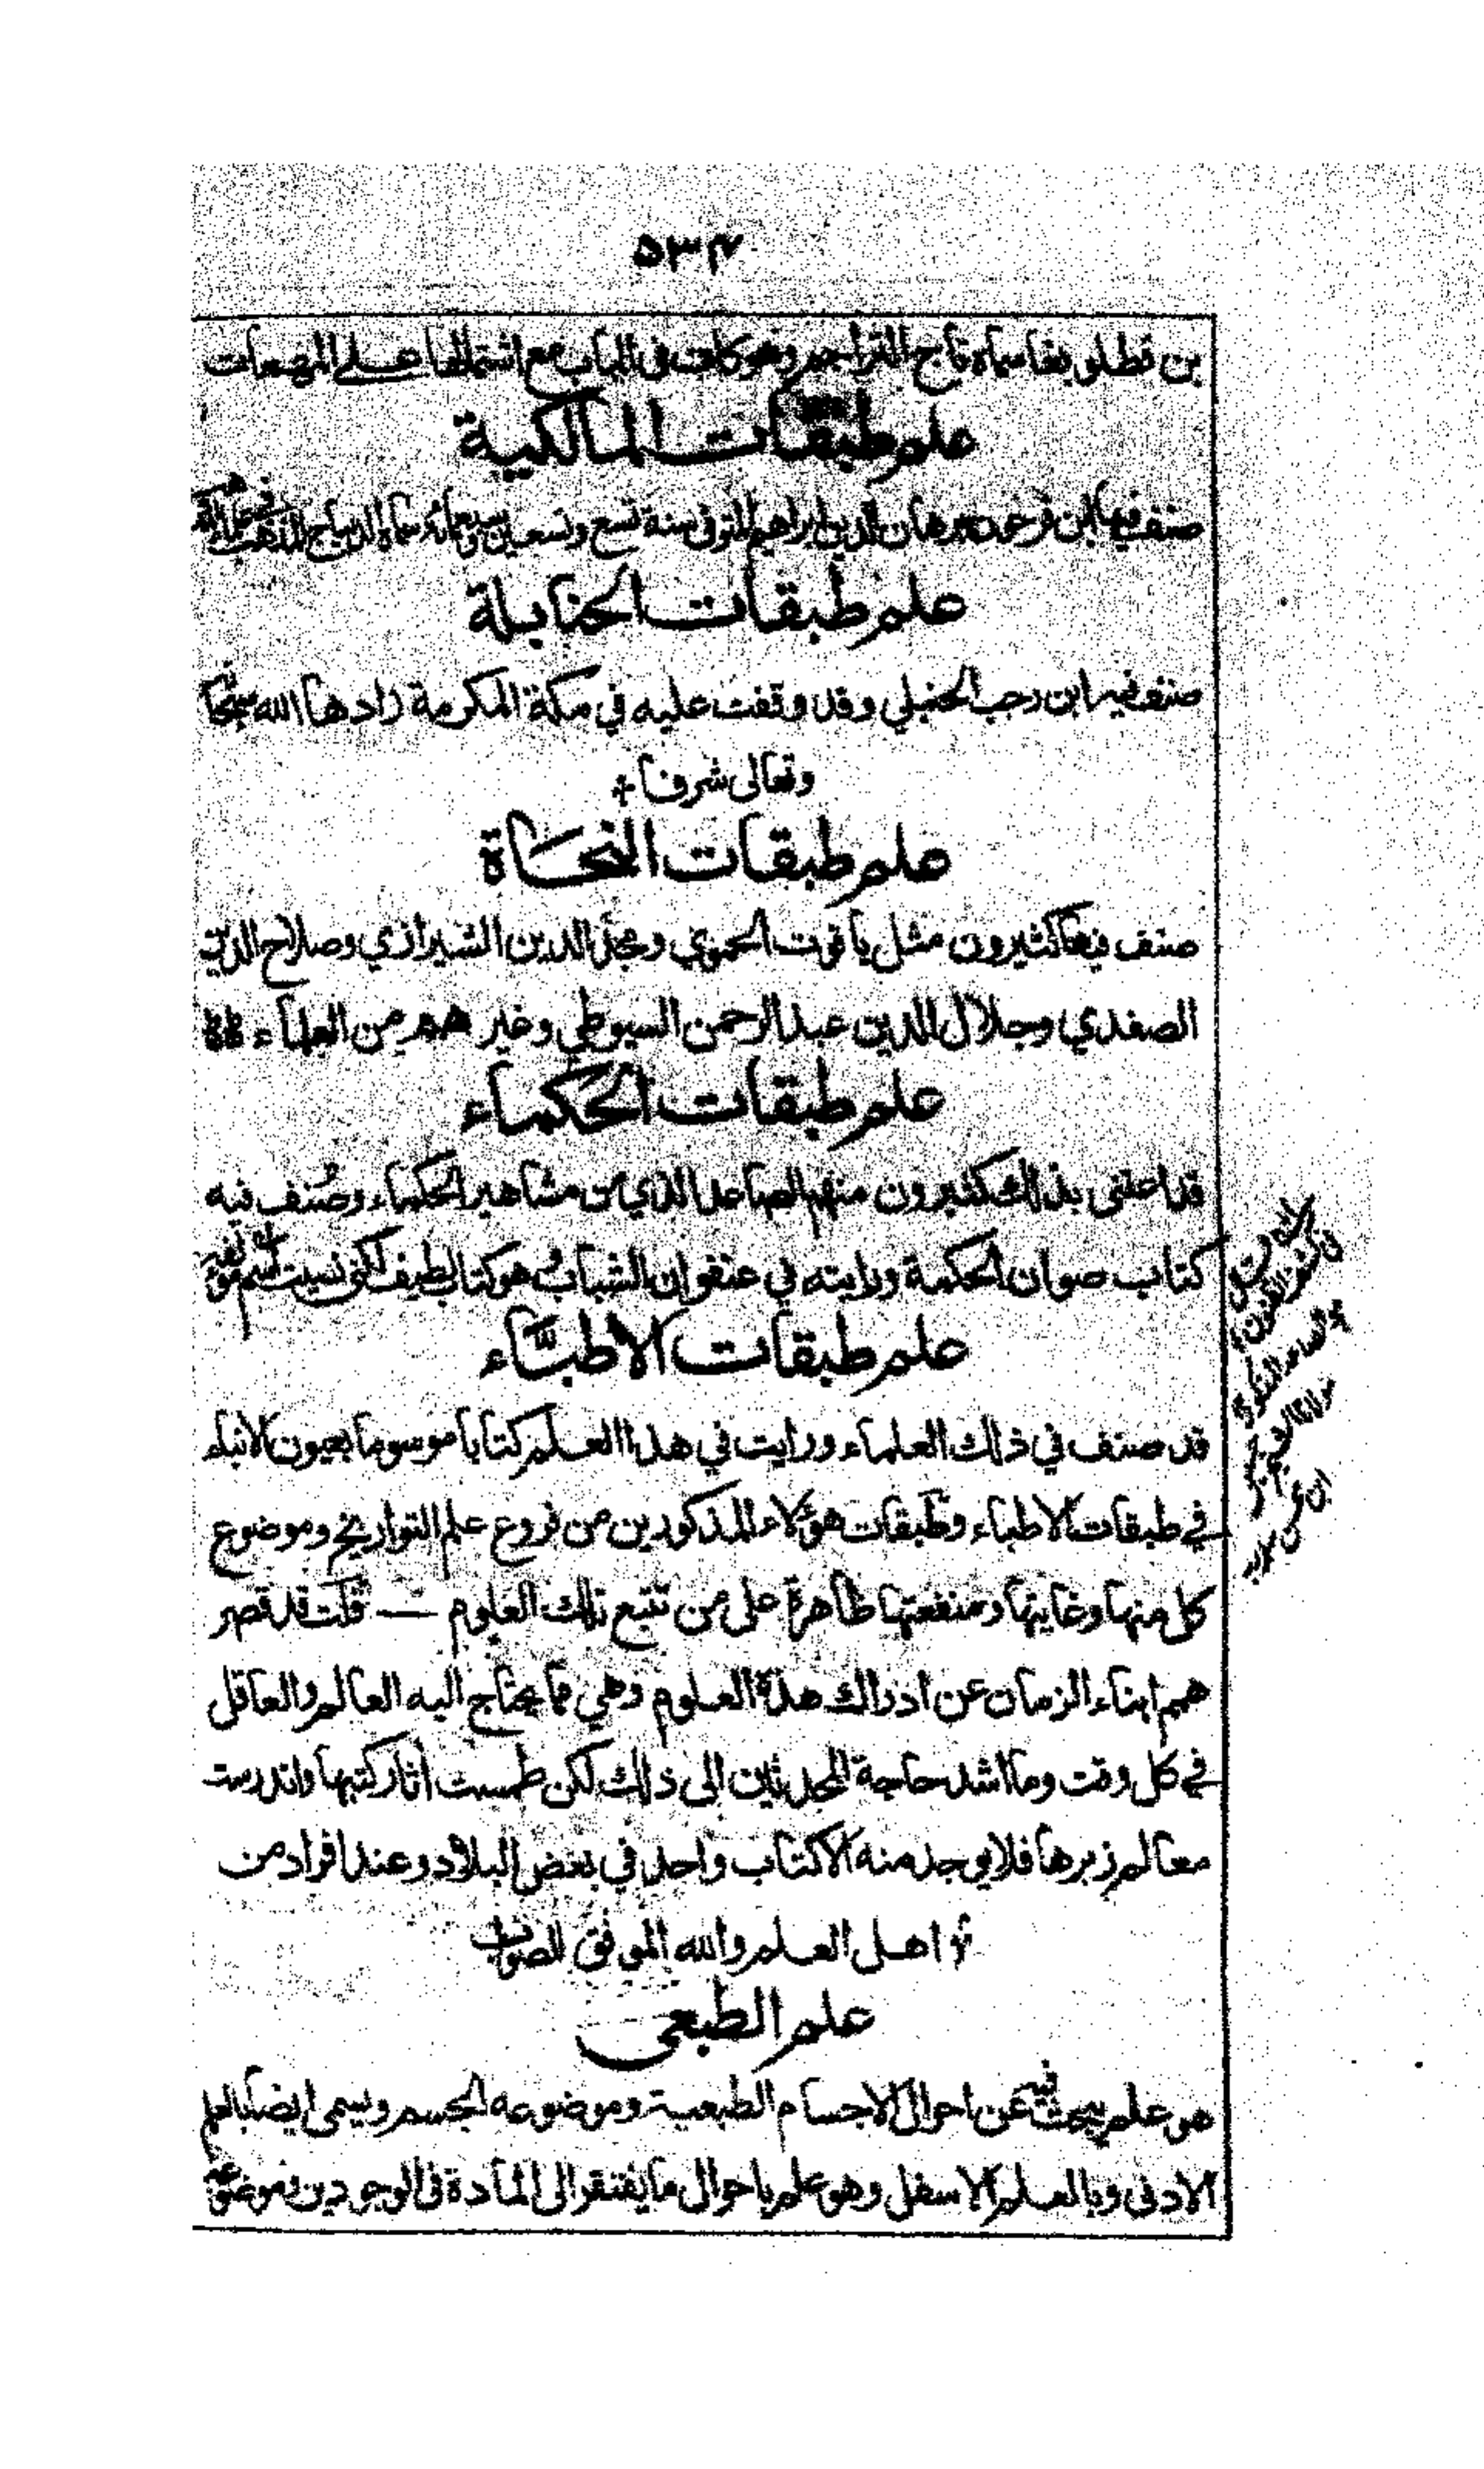 ٥٣٤
بن قطلوبغا سماه تاج التراجم وهو كاف في الباب مع اشتمالها على المهمات
علم طبقات المالكية
صنف فيها ابن فرحون برهان الدين ابراهيم المتوفى سنة تسع وتسعين وسبعمائة سماه الديباج المذهب
علم طبقات الحنابلة
صنف فيه ابن رجب الحنبلي وقد وقفت عليه في مكة المكرمة زادها الله سبحانه
وتعالى شرفا
علم طبقات النحاة
صنف فيها كثيرون مثل ياقوت الحموي ومجد الدين الشيرازي وصلاح الدين
الصفدي وجلال الدين عبد الرحمن السيوطي وغير هم من العلماء
علم طبقات الحكماء
قد اعتنى بذلك كثيرون منهم الصاعد الذي من مشاهير الحكماء وصنف فيه
كتاب صوان الحكمة ورايته في عنفوان الشباب وهو كتاب لطيف لكني نسيت اسم مؤلفه
علم طبقات الاطبَّاء
قد صنف في ذلك العلماء ورايت في هذا العلم كتابا موسوما بعيون الانباء
في طبقات الاطباء وطبقات هؤلاء المذكورين من فروع علم التواريخ وموضوع
كل منها وغايتها ومنفعتها ظاهرة على من تتبع تلك العلوم — قلت قد قصر
همم ابناء الزمان عن ادراك هذه العلوم وهي مما يحتاج اليه العالم والعاقل
في كل وقت وما اشد حاجة المحدثين الى ذلك لكن طمست آثار كتبها واندرست
معالم زبرها فلا يوجد منه الا كتاب واحد في بعض البلاد وعند افراد من
اهل العلم والله الموفق للصواب
علم الطبعي
هو علم يبحث فيه عن احوال الاجسام الطبعية وموضوعه الجسم ويسمى ايضا بالعلم
الادنى وبالعلم الاسفل وهو علم باحوال ما يفتقر الى المادة في الوجودين وموضوعه